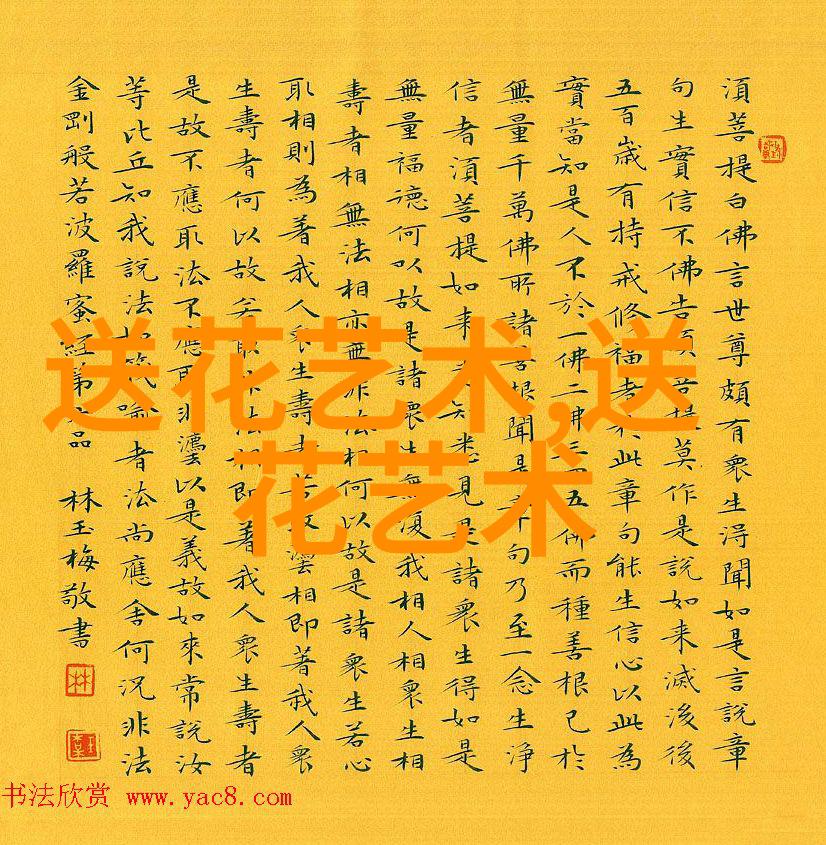 須菩提白佛言世尊頗有衆生得聞如是言說章
句生實信不佛告須菩提莫作是說如来滅後後
五百歲有持戒修福者於此章句能生信心以此為
實當知是人不於一佛二佛三四五佛而種善根已於
無量千萬佛所諸善根聞是章句乃至一念生淨
信者須菩提如来悉知悉見是諸衆生得如是
無量福德何以故是諸衆生無復我相人相衆生相
壽者相無法相亦無非法相何以故是諸衆生若心
取相則為著我人衆生壽者若取灋相即著我人衆
生壽者何以故若取非法相即著我人衆生壽者
是故不應取法不應取非灋以是義故如來常說汝
等比丘知我說法如筏喻者法尚應舍何況非法
金剛般若波羅蜜經第六品 林玉梅敬書
送花艺术,送
花艺术
书法欣赏 www.yac8.com